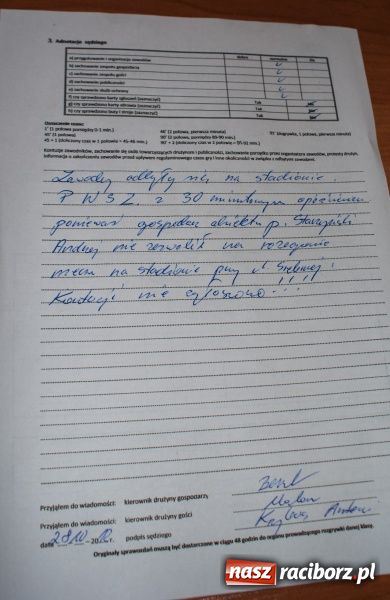 3. Adnotacje sędziego
dobre normalne złe
a) przygotowanie i organizacja zawodów
b) zachowanie zespołu gospodarzy
c) zachowanie zespołu gości
d) zachowanie publiczności
e) zachowanie służb ochrony
f) czy sprawdzono karty zgłoszeń (zaznaczyć) Tak Nie
g) czy sprawdzono karty zdrowia (zaznaczyć) Tak Nie
h) czy sprawdzono buty i stroje (zaznaczyć) Tak Nie
Oznaczenie minut:
1' (1 połowa pomiędzy 0-1 min.) 46' (2 połowa, pierwsza minuta)
45' (1 połowa) 90' (2 połowa, pomiędzy 89-90 min.)
45 + 1 (doliczony czas w 1 połowie = 45-46 min.) 90' + 2 (doliczony czas w 2 połowie = 91-92 min.)
Kontuzje zawodników, zachowanie się osób towarzyszących drużynom i publiczności, zachowanie porządku przez organizatora zawodów, protesty drużyn,
informacja o zakończeniu zawodów przed upływem regulaminowego czasu gry i inne okoliczności w związku z odbytymi zawodami.
Zawody odbyły się na stadionie
PWSZ z 30 minutowym opóźnieniem
ponieważ gospodarz obiektu p. Starzyński
Andrzej nie zezwolił na rozegranie
meczu na stadionie przy ul. Srebrnej!
Kontuzji nie zgłoszono!!!
Przyjąłem do wiadomości: kierownik drużyny gospodarzy
Przyjąłem do wiadomości: kierownik drużyny gości
data 28.10.2010r. podpis sędziego
Oryginały sprawozdań muszą być dostarczone w ciągu 48 godzin do organu prowadzącego rozgrywki danej klasy.
nasz raciborz.pl